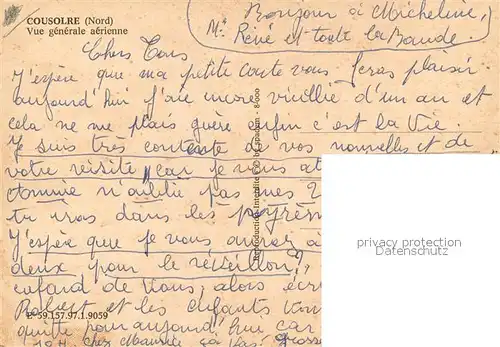 COUSOLRE (Nord)
Vue générale aérienne
Bonjour à Micheline,
Mr René et toute la Bande.
Chers Tous
J'espère que ma petite carte vous feras plaisir
aujourd'hui j'aie encore vieillie d'un an et
cela ne me plais guère enfin c'est la Vie.
Je suis très contente de vos nouvelles et de
votre visite car je vous at
n'aublie pas mes
tu iras dans les progrès
J'espère que je vous aurez à
deux pour le réveillon,
cafard de vous, alors écr
Robert et les enfants vou
quitte pour aujourd'hui car
chez Maurice ça va. grosse
Reproduction Interdite
8-000
E-59.157.97.1.9059
privacy protection
Datenschutz